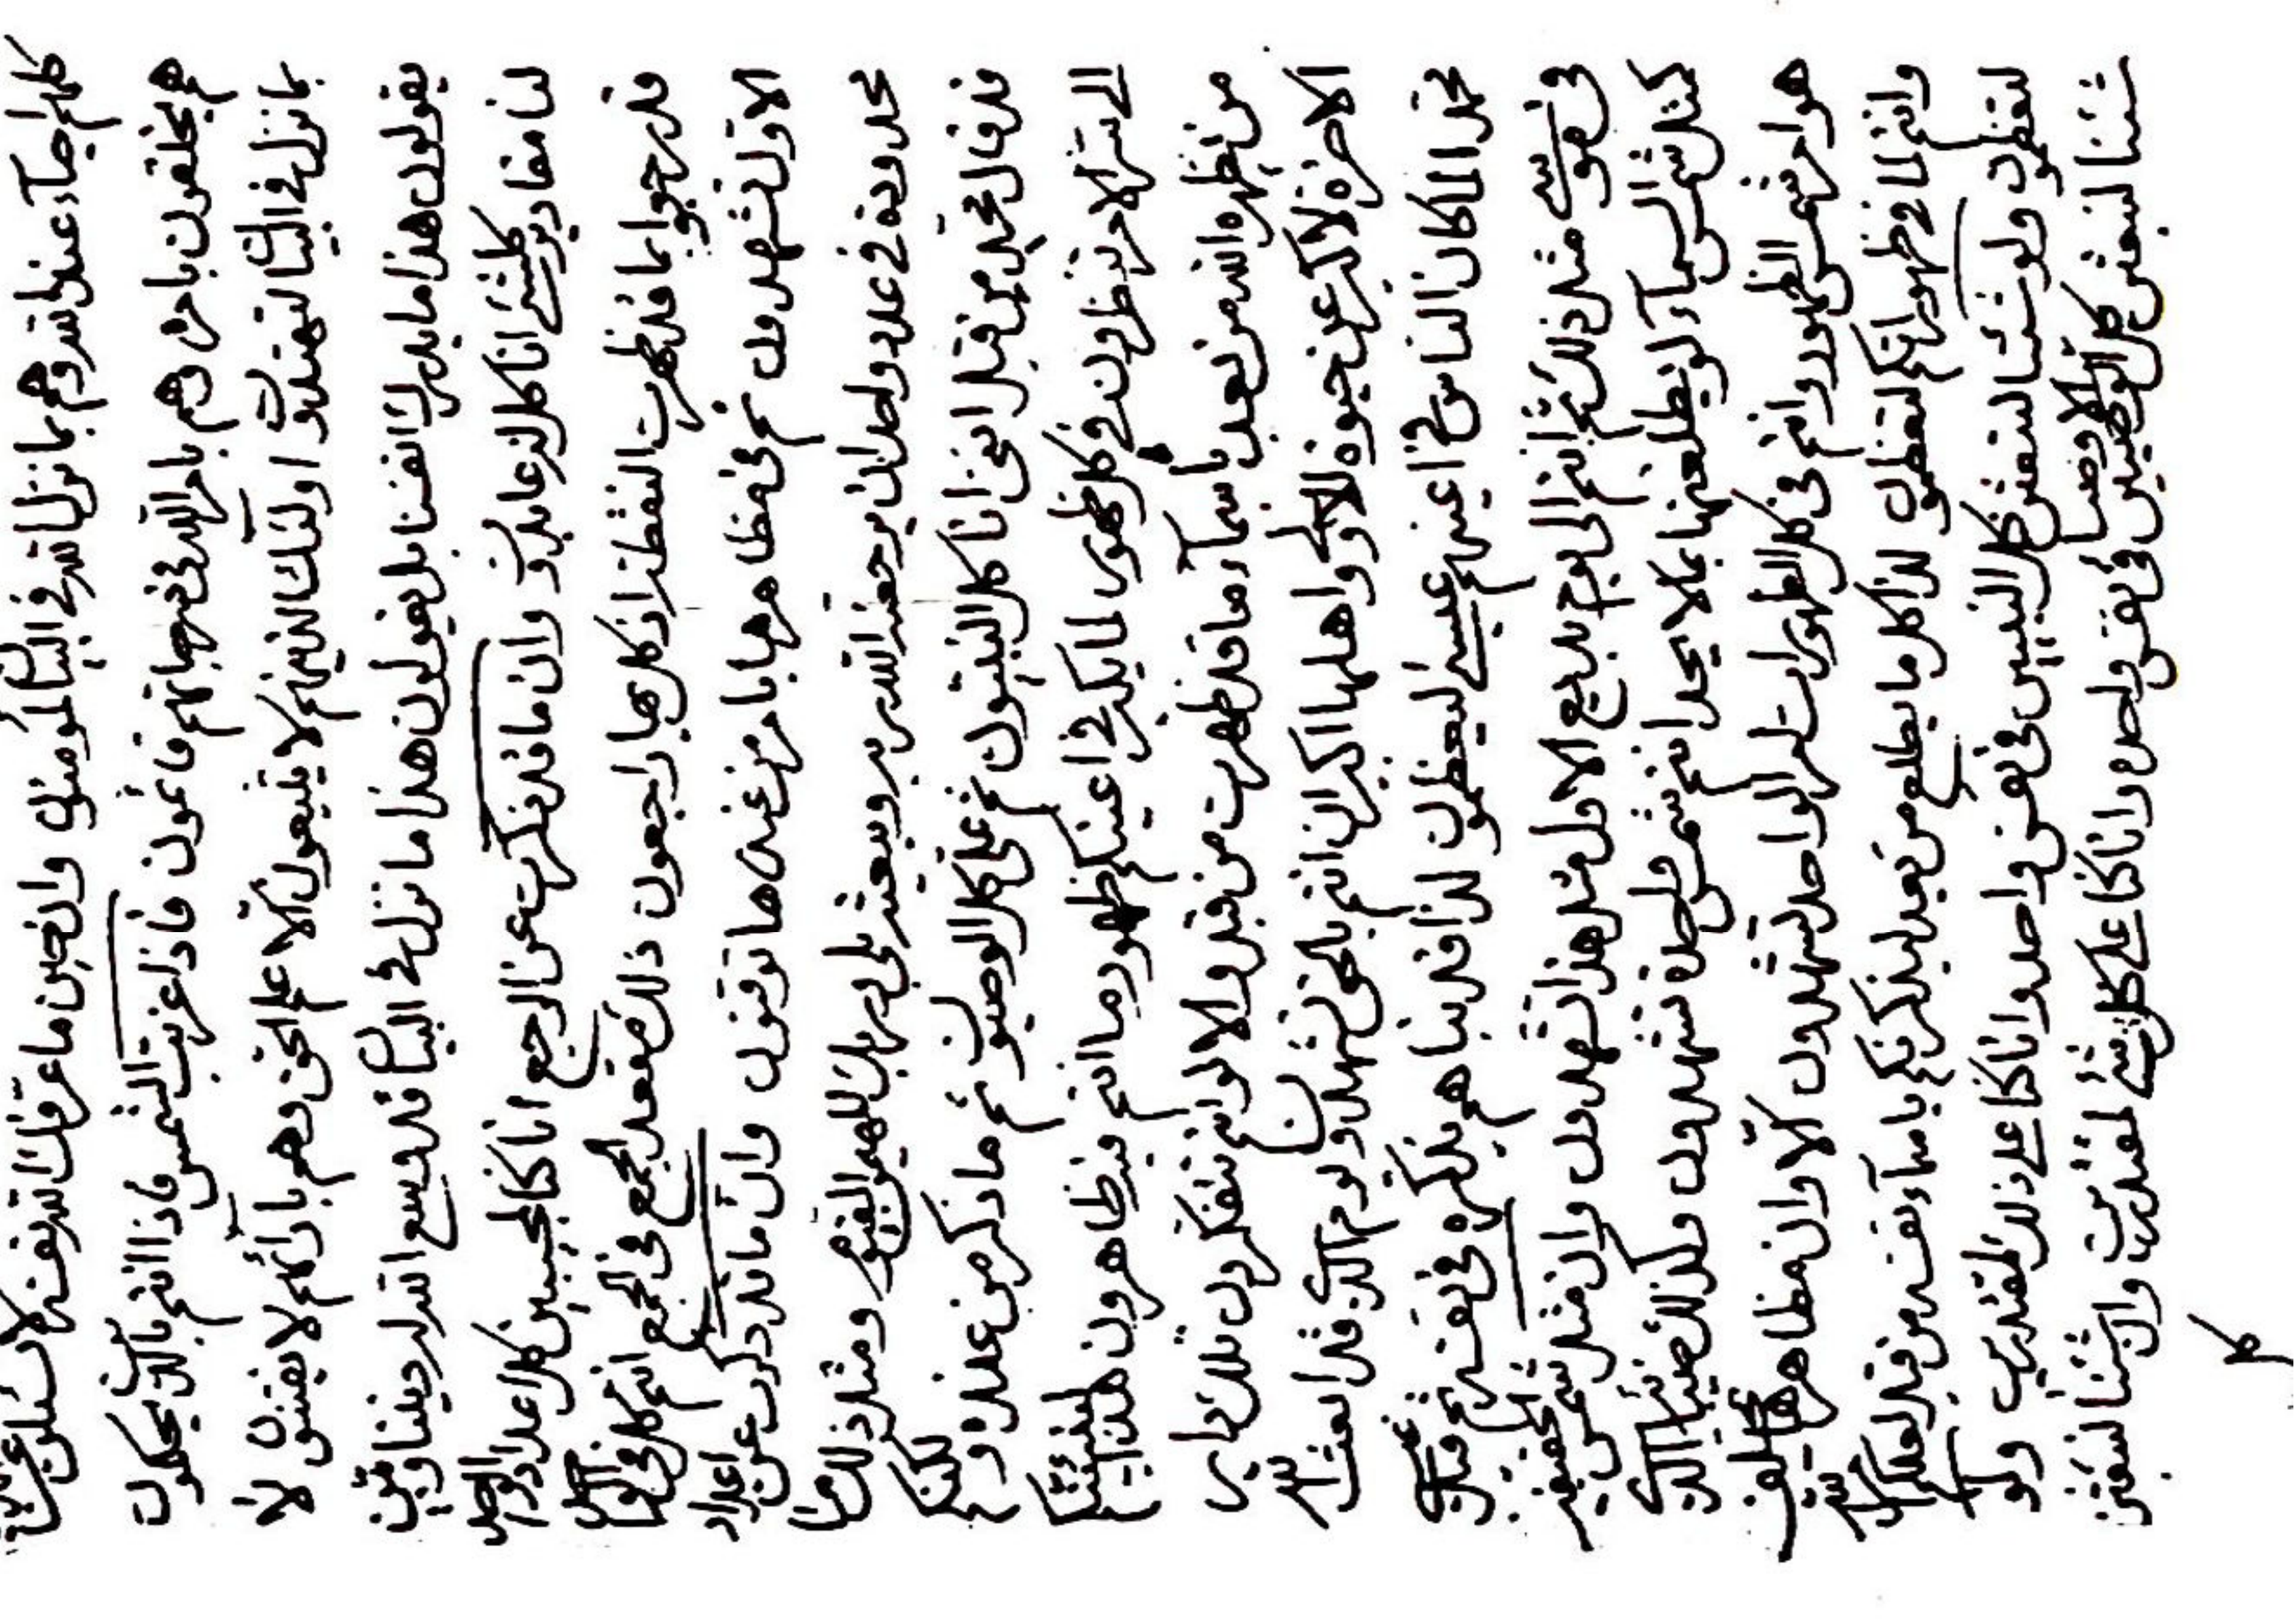 كلهم احياء عند الله وهم بما نزل الله في البيان لمؤمنون وان حين ما عرفك الله نفسه لا تسئلن عن شئ
هم يخلقون بامره وهم بامر الله في منهاجهم قائمون فاذا غربت الشمس فاذا انتم بالليل تحكمون
بما نزل في البيان لتهتدون اولئك الذينهم لا يتبعون الا علم الحق وهم بارائهم لا يفتنون لا
يقولون هذا ما يدرك انفسنا بل يقولون هذا ما نزل في البيان قد وسع الله لديننا وبين
لنا مقادير كلشئ انا كل له عابدون وان ما قد ذكرت عن الرجع انا كنا لمجيبين كل اعداد الواحد
قد رجعوا بما قد ظهرت النقطة اذ كل بها راجعون ذلك مقعد الجمع في الجمع انتم كل في الواحد
الاول تشهدون ثم في مظاهرها بامر من عنده ها توقنون وان ما قد ذكرت عن اعداد
محدودة في عدد واحد ان يرجعنه الله ربه ويبعثه بلى وربك المهيمن القيوم ومثل ذلك ما
قد قال محمد من قبل انني انا كل النبيون ثم على كل الوصيون ثم ما ذكر من عنده ولكنكم
الى سر الامر تنظرون في كل ظهور لما يكبر في اعينكم ظهور ما انتم فيه ظاهرون هذا
من يظهره الله من بعد باسماء ما قد ظهرت من قبل والا لو انتم تتفكرون تلك
الاخرة لاكبر عن حيوة الاولى واهلها اكبر ان انتم بالحق تشهدون ويوم الذي قد بعث الله
محمدا لما كان الناس في اعينهم عيسى ليعظمون لذا قد بناهم بذكره في نفسه ثم قبل
في موسى مثل ذلك ثم انتم الى يوم بديع الاول مثل هذا تشهدون وان مثل شمس الحقيقة
كمثل شمس السماء لو يطلعنها بما لا يحد انتم شمس واحدة تشهدون وكذلك ضياء الذي
هو امر شمس الظهور وانتم في كل الظهورات امر الواحد تشهدون كلا وان مظاهرها
وانتم لما في ظهوراتكم لتعظمون لذا كل ما يطلع من بعد ليذكرنكم باسماء نفسه من قبل لعلكم
لتعظمون ولو شئنا لنبعثن كل النبيين في نفس واحدة وانا كنا على ذلك لمقتدرين ولو
شئنا لنبعثن كل الوصيين في نفس واحدة وانا كنا على كل شئ لمقتدرين وان شئنا لنبعثن
كل